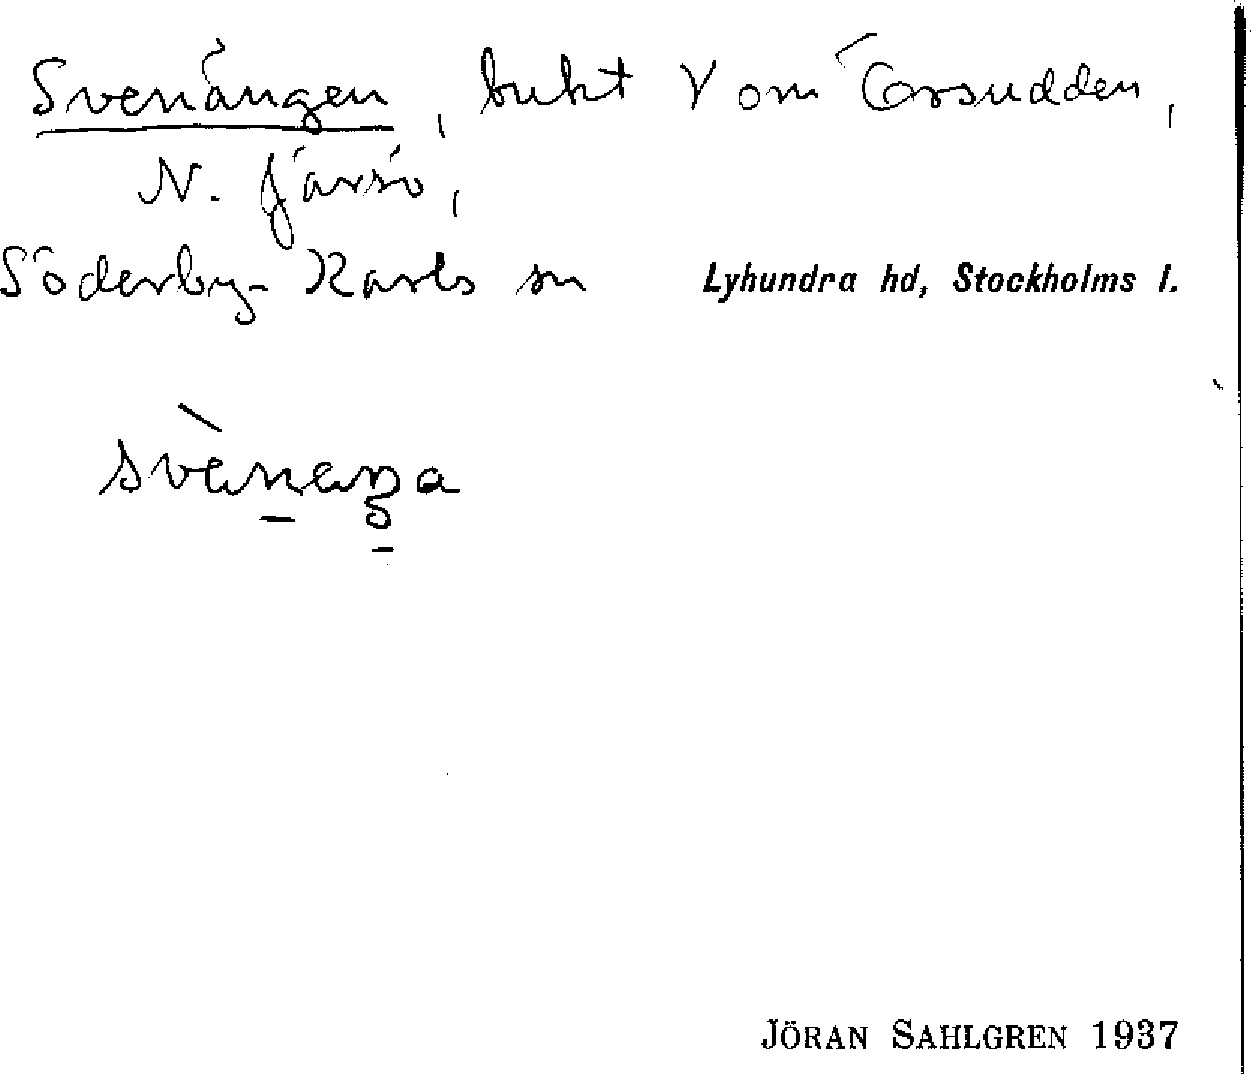 Svenängen, bukt V om Orsudden,
N. Järsö,
Söderby-Karls sn Lyhundra hd, Stockholms l.
JÖRAN SAHLGREN 1937